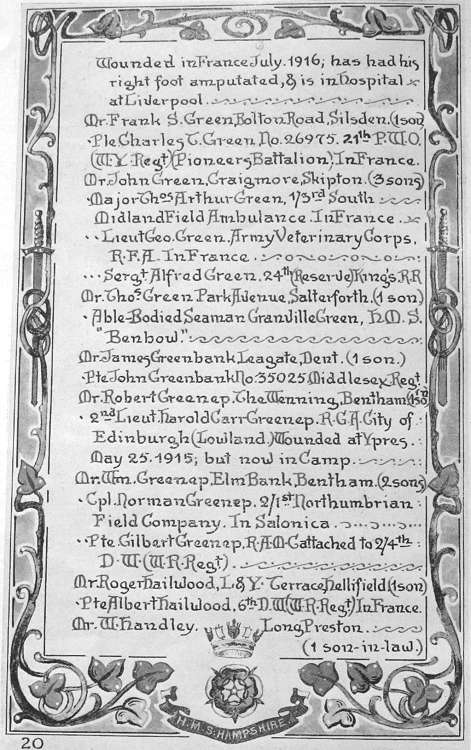 Wounded in France July. 1916; has had his
right foot amputated, & is in hospital
at Liverpool.
Mr. Frank S. Green, Bolton Road, Silsden. (1 son)
· Pte Charles T. Green, No. 26975. 21th P.W.O.
(W.Y. Regt) (Pioneers Battalion), In France.
Mr. John Green, Craigmore, Skipton. (3 sons)
· Major Thos Arthur Green, 1/3rd South
Midland Field Ambulance. In France.
·· Lieut Geo. Green. Army Veterinary Corps,
R.F.A. In France.
··· Sergt Alfred Green. 24th (Reserve) King's. R.R
Mr. Thos. Green Park Avenue, Salterforth. (1 son)
· Able-Bodied Seaman Granville Green, H.M.S.
"Benbow."
Mr. James Greenbank, Leagate, Dent. (1 son.)
· Pte John Greenbank No. 35025 Middlesex Regt.
Mr. Robert Greenep. The Wenning, Bentham (1 son)
· 2nd Lieut Harold Carr Greenep. R.G.A. City of
Edinburgh (Lowland.) Wounded at Ypres.
May 25. 1915; but now in Camp.
Mr. Wm. Greenep, Elm Bank, Bentham. (2 sons)
· Cpl. Norman Greenep. 2/1st Northumbrian
Field Company. In Salonica.
·· Pte Gilbert Greenep, R.A.M.C attached to 2/4th
D.W. (W.R. Regt)
Mr. Roger Hailwood, L & Y. Terrace, Hellifield (1 son)
· Pte Albert Hailwood, 6th D.W (W.R. Regt) In France.
Mr. W. Handley. Long Preston.
(1 son-in-law.)
H.M.S. HAMPSHIRE.
20